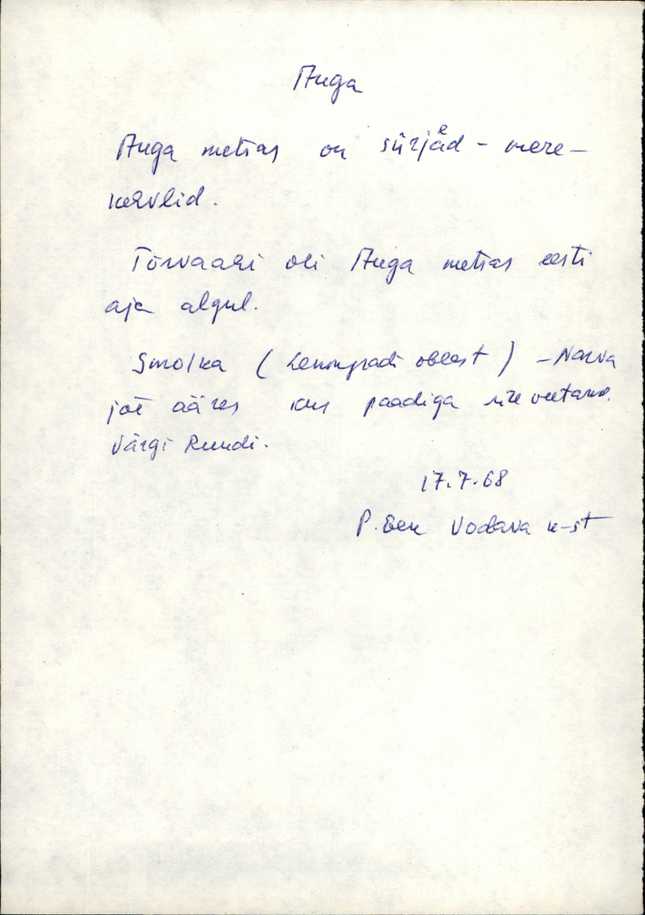 Auga
Auga metsas on siirjåd - mere-
kervlid.
Tõrvaahi oli Auga metsas eesti
aja algul.
Smolka (Leningradi oblast) - Narva
jõe ääres kus paadiga üle veetakse.
Värgi Rundi.
17.7.68
P. Eek Vodava k-st